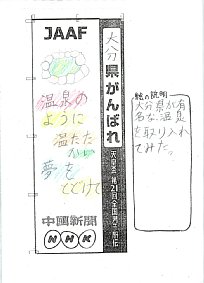 JAAF
大分県がんばれ
天皇盃 第21回全国男子駅伝
温泉の
ように
温たた
かい
夢を
とどけて
中國新聞
NHK
絵の説明
大分県が有
名な温泉
を取り入れ
てみた。